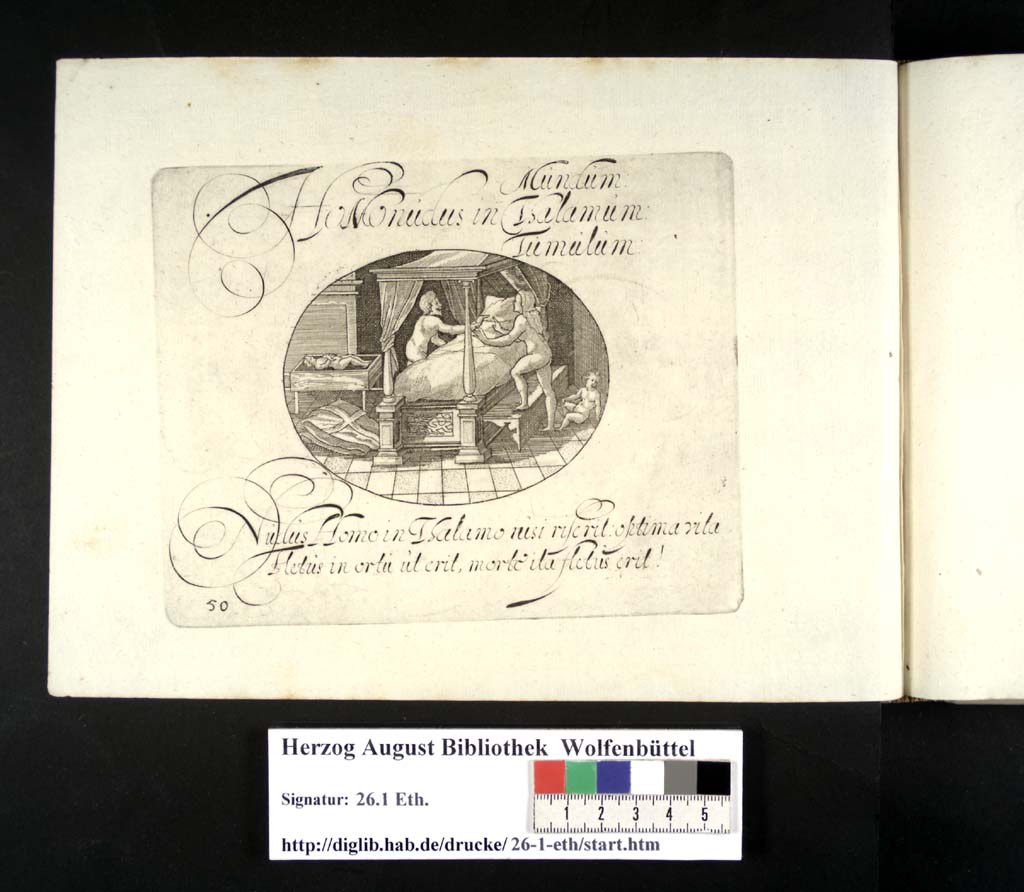 Mundum:
Homo nudus in Thalamum:
Tumulum:
Nullus Homo in Thalamo nisi riserit: optima vita
Fletus in ortu ut erit, morte ita fletus erit!
50
Herzog August Bibliothek Wolfenbüttel
Signatur: 26.1 Eth.
1 2 3 4 5
http://diglib.hab.de/drucke/ 26-1-eth/start.htm